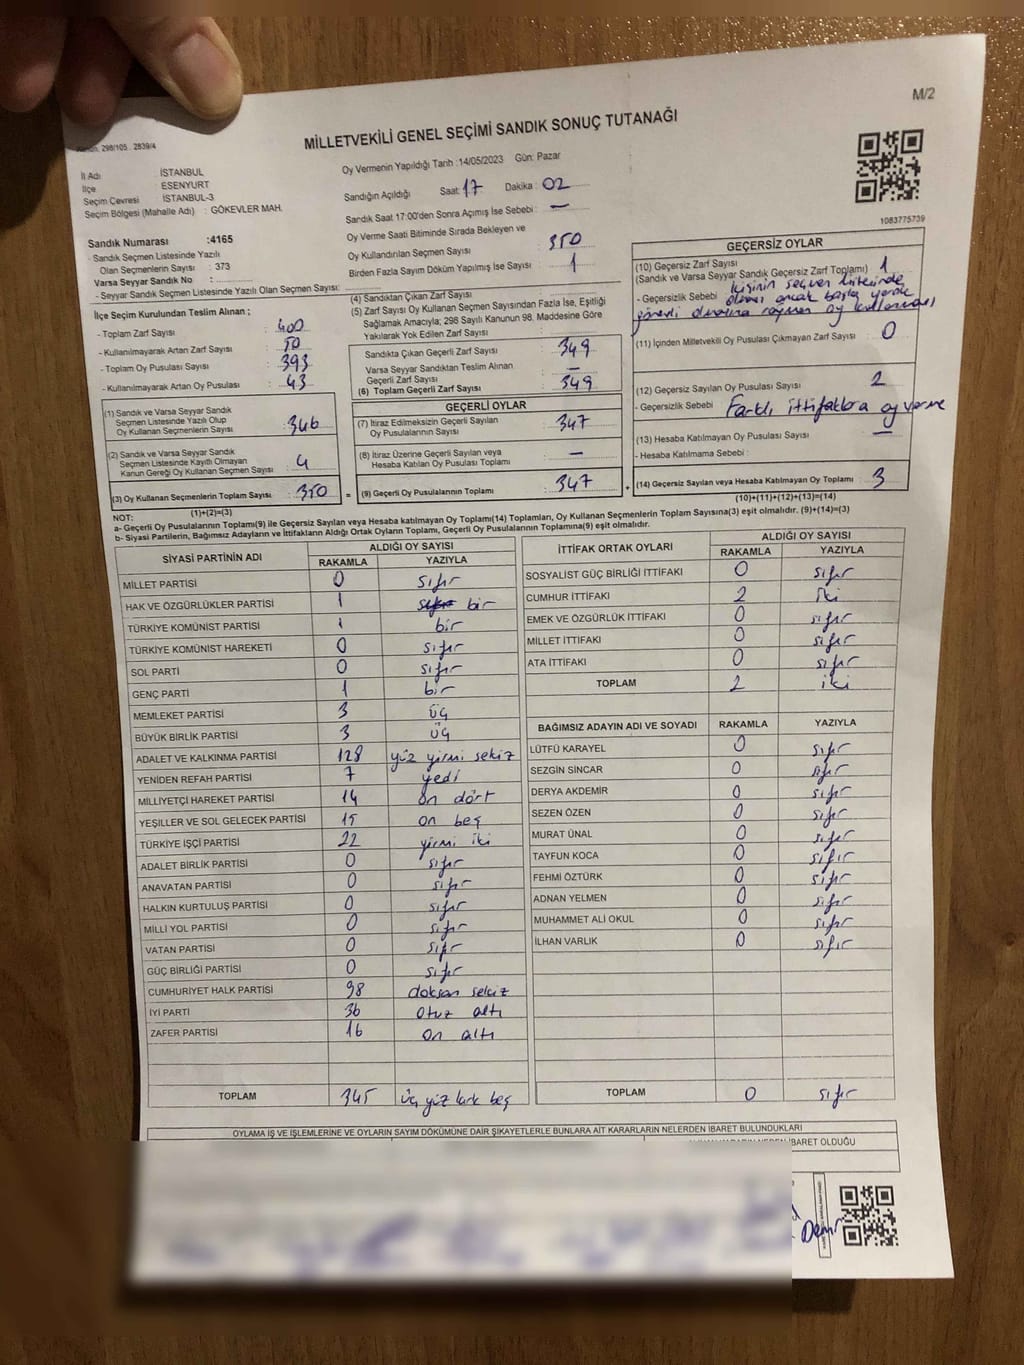 M/2
MİLLETVEKİLİ GENEL SEÇİMİ SANDIK SONUÇ TUTANAĞI
298/105 2839/4
İl Adı : İSTANBUL
İlçe : ESENYURT
Seçim Çevresi : İSTANBUL-3
Seçim Bölgesi (Mahalle Adı) : GÖKEVLER MAH.
Sandık Numarası :4165
- Sandık Seçmen Listesinde Yazılı
Olan Seçmenlerin Sayısı : 373
Varsa Seyyar Sandık No :
- Seyyar Sandık Seçmen Listesinde Yazılı Olan Seçmen Sayısı:
İlçe Seçim Kurulundan Teslim Alınan ;
- Toplam Zarf Sayısı : 400
- Kullanılmayarak Artan Zarf Sayısı : 50
- Toplam Oy Pusulası : 393
- Kullanılmayarak Artan Oy Pusulası : 43
(1) Sandık ve Varsa Seyyar Sandık
Seçmen Listesinde Yazılı Olup
Oy Kullanan Seçmenlerin Sayısı : 346
(2) Sandık ve Varsa Seyyar Sandık
Seçmen Listesinde Kayıtlı Olmayan
Kanun Gereği Oy Kullanan Seçmen Sayısı : 4
(3) Oy Kullanan Seçmenlerin Toplam Sayısı : 350
(1)+(2)=(3)
Oy Vermenin Yapıldığı Tarih :14/05/2023 Gün: Pazar
Sandığın Açıldığı Saat: 17 Dakika : 02
Sandık Saat 17:00'den Sonra Açımış İse Sebebi : —
Oy Verme Saati Bitiminde Sırada Bekleyen ve
Oy Kullandırılan Seçmen Sayısı : 350
Birden Fazla Sayım Döküm Yapılmış İse Sayısı : 1
(4) Sandıktan Çıkan Zarf Sayısı :
(5) Zarf Sayısı Oy Kullanan Seçmen Sayısından Fazla İse, Eşitliği
Sağlamak Amacıyla; 298 Sayılı Kanunun 98. Maddesine Göre
Yakılarak Yok Edilen Zarf Sayısı :
Sandıkta Çıkan Geçerli Zarf Sayısı : 349
Varsa Seyyar Sandıktan Teslim Alınan
Geçerli Zarf Sayısı : —
(6) Toplam Geçerli Zarf Sayısı : 349
GEÇERLİ OYLAR
(7) İtiraz Edilmeksizin Geçerli Sayılan
Oy Pusulalarının Sayısı : 347
(8) İtiraz Üzerine Geçerli Sayılan veya
Hesaba Katılan Oy Pusulası Toplamı : —
= (9) Geçerli Oy Pusulalarının Toplamı : 347 +
1083775739
GEÇERSİZ OYLAR
(10) Geçersiz Zarf Sayısı
(Sandık ve Varsa Seyyar Sandık Geçersiz Zarf Toplamı) : 1
- Geçersizlik Sebebi : kişinin seçmen listesinde
olması ancak başka yerde
görevli olmasına rağmen oy kullanması
(11) İçinden Milletvekili Oy Pusulası Çıkmayan Zarf Sayısı : 0
(12) Geçersiz Sayılan Oy Pusulası Sayısı : 2
- Geçersizlik Sebebi : Farklı ittifaklara oy verme
(13) Hesaba Katılmayan Oy Pusulası Sayısı : —
- Hesaba Katılmama Sebebi :
(14) Geçersiz Sayılan veya Hesaba Katılmayan Oy Toplamı : 3
(10)+(11)+(12)+(13)=(14)
NOT:
a- Geçerli Oy Pusulalarının Toplamı(9) ile Geçersiz Sayılan veya Hesaba katılmayan Oy Toplamı(14) Toplamları, Oy Kullanan Seçmenlerin Toplam Sayısına(3) eşit olmalıdır. (9)+(14)=(3)
b- Siyasi Partilerin, Bağımsız Adayların ve İttifakların Aldığı Ortak Oyların Toplamı, Geçerli Oy Pusulalarının Toplamına(9) eşit olmalıdır.
SİYASİ PARTİNİN ADI ALDIĞI OY SAYISI
RAKAMLA YAZIYLA
MİLLET PARTİSİ 0 sıfır
HAK VE ÖZGÜRLÜKLER PARTİSİ 1 sıfır bir
TÜRKİYE KOMÜNİST PARTİSİ 1 bir
TÜRKİYE KOMÜNİST HAREKETİ 0 sıfır
SOL PARTİ 0 sıfır
GENÇ PARTİ 1 bir
MEMLEKET PARTİSİ 3 üç
BÜYÜK BİRLİK PARTİSİ 3 üç
ADALET VE KALKINMA PARTİSİ 128 yüz yirmi sekiz
YENİDEN REFAH PARTİSİ 7 yedi
MİLLİYETÇİ HAREKET PARTİSİ 14 on dört
YEŞİLLER VE SOL GELECEK PARTİSİ 15 on beş
TÜRKİYE İŞÇİ PARTİSİ 22 yirmi iki
ADALET BİRLİK PARTİSİ 0 sıfır
ANAVATAN PARTİSİ 0 sıfır
HALKIN KURTULUŞ PARTİSİ 0 sıfır
MİLLİ YOL PARTİSİ 0 sıfır
VATAN PARTİSİ 0 sıfır
GÜÇ BİRLİĞİ PARTİSİ 0 sıfır
CUMHURİYET HALK PARTİSİ 98 doksan sekiz
İYİ PARTİ 36 otuz altı
ZAFER PARTİSİ 16 on altı
TOPLAM 345 üç yüz kırk beş
İTTİFAK ORTAK OYLARI ALDIĞI OY SAYISI
RAKAMLA YAZIYLA
SOSYALİST GÜÇ BİRLİĞİ İTTİFAKI 0 sıfır
CUMHUR İTTİFAKI 2 iki
EMEK VE ÖZGÜRLÜK İTTİFAKI 0 sıfır
MİLLET İTTİFAKI 0 sıfır
ATA İTTİFAKI 0 sıfır
TOPLAM 2 iki
BAĞIMSIZ ADAYIN ADI VE SOYADI RAKAMLA YAZIYLA
LÜTFÜ KARAYEL 0 sıfır
SEZGİN SİNCAR 0 sıfır
DERYA AKDEMİR 0 sıfır
SEZEN ÖZEN 0 sıfır
MURAT ÜNAL 0 sıfır
TAYFUN KOCA 0 sıfır
FEHMİ ÖZTÜRK 0 sıfır
ADNAN YELMEN 0 sıfır
MUHAMMET ALİ OKUL 0 sıfır
İLHAN VARLIK 0 sıfır
TOPLAM 0 sıfır
OYLAMA İŞ VE İŞLEMLERİNE VE OYLARIN SAYIM DÖKÜMÜNE DAİR ŞİKAYETLERLE BUNLARA AİT KARARLARIN NELERDEN İBARET BULUNDUKLARI
İBARET OLDUĞU
Demir